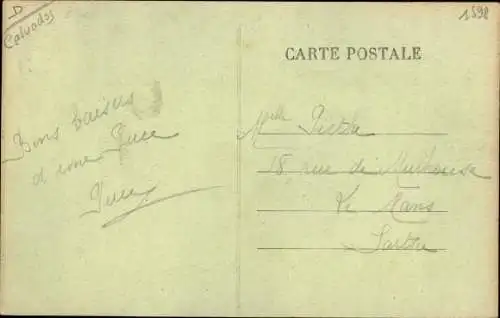 D
Calvados
1598
CARTE POSTALE
Bons baisers
d'une Puce
Puce
Melle
18 rue de Mulhouse
Le Mans
Sarthe